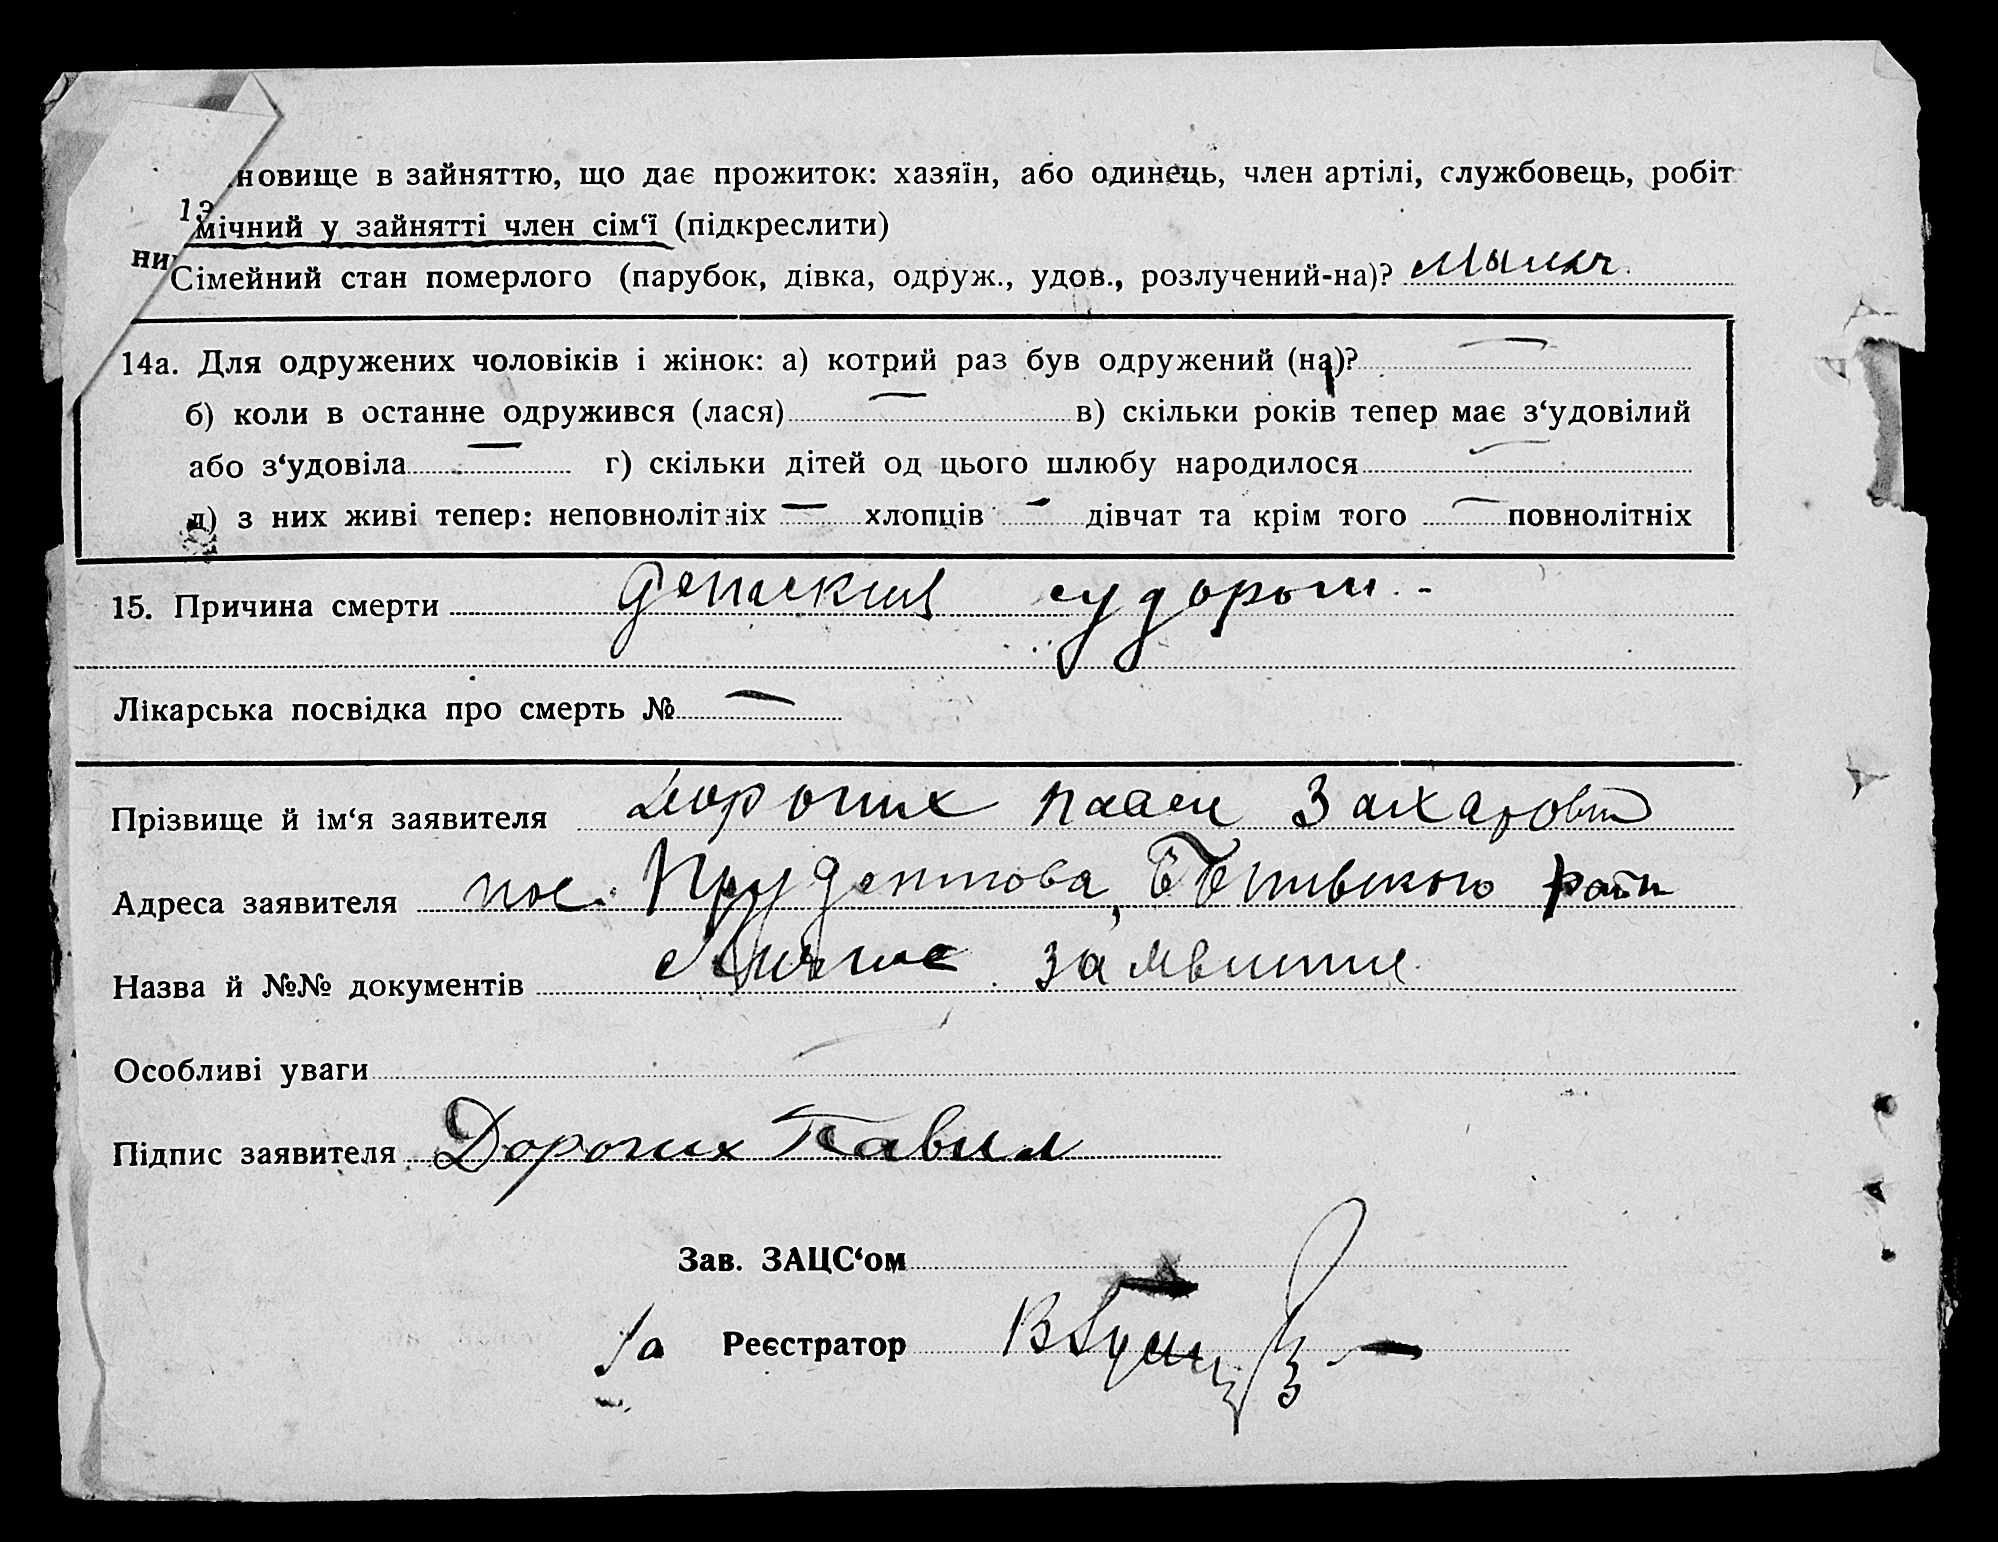 новище в зайняттю, що дає прожиток: хазяїн, або одинець, член артілі, службовець, робіт
13
мічний у зайнятті член сім‘ї (підкреслити)
ни
Сімейний стан померлого (парубок, дівка, одруж., удов., розлучений-на)?
14а. Для одружених чоловіків і жінок: а) котрий раз був одружений (на)? —
б) коли в останне одружився (лася) — в) скільки років тепер має з‘удовілий
або з‘удовіла — г) скільки дітей од цього шлюбу народилося —
д) з них живі тепер: неповнолітніх — хлопців — дівчат та крім того — повнолітніх
15. Причина смерти детский судорги. -
Лікарська посвідка про смерть № —
Прізвище й ім‘я заявителя Дорогих Павел Захарович
Адреса заявителя пос. Прудентова, района
Назва й №№ документів Личное заявление
Особливі уваги
Підпис заявителя Дорогих Павел
Зав. ЗАЦС‘ом
Реєстратор